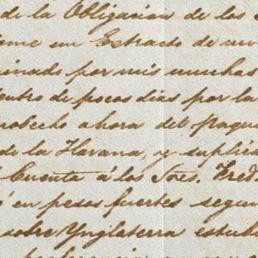 de la Obligacion de los
eme un Extracto de
inado por mis muchas
dentro de pocos dias por la
rovecho ahora del Paque
de la Havana, y suplic
Cuenta á los Sres. Fred
ó en pesos fuertes segun
sobre Ynglaterra